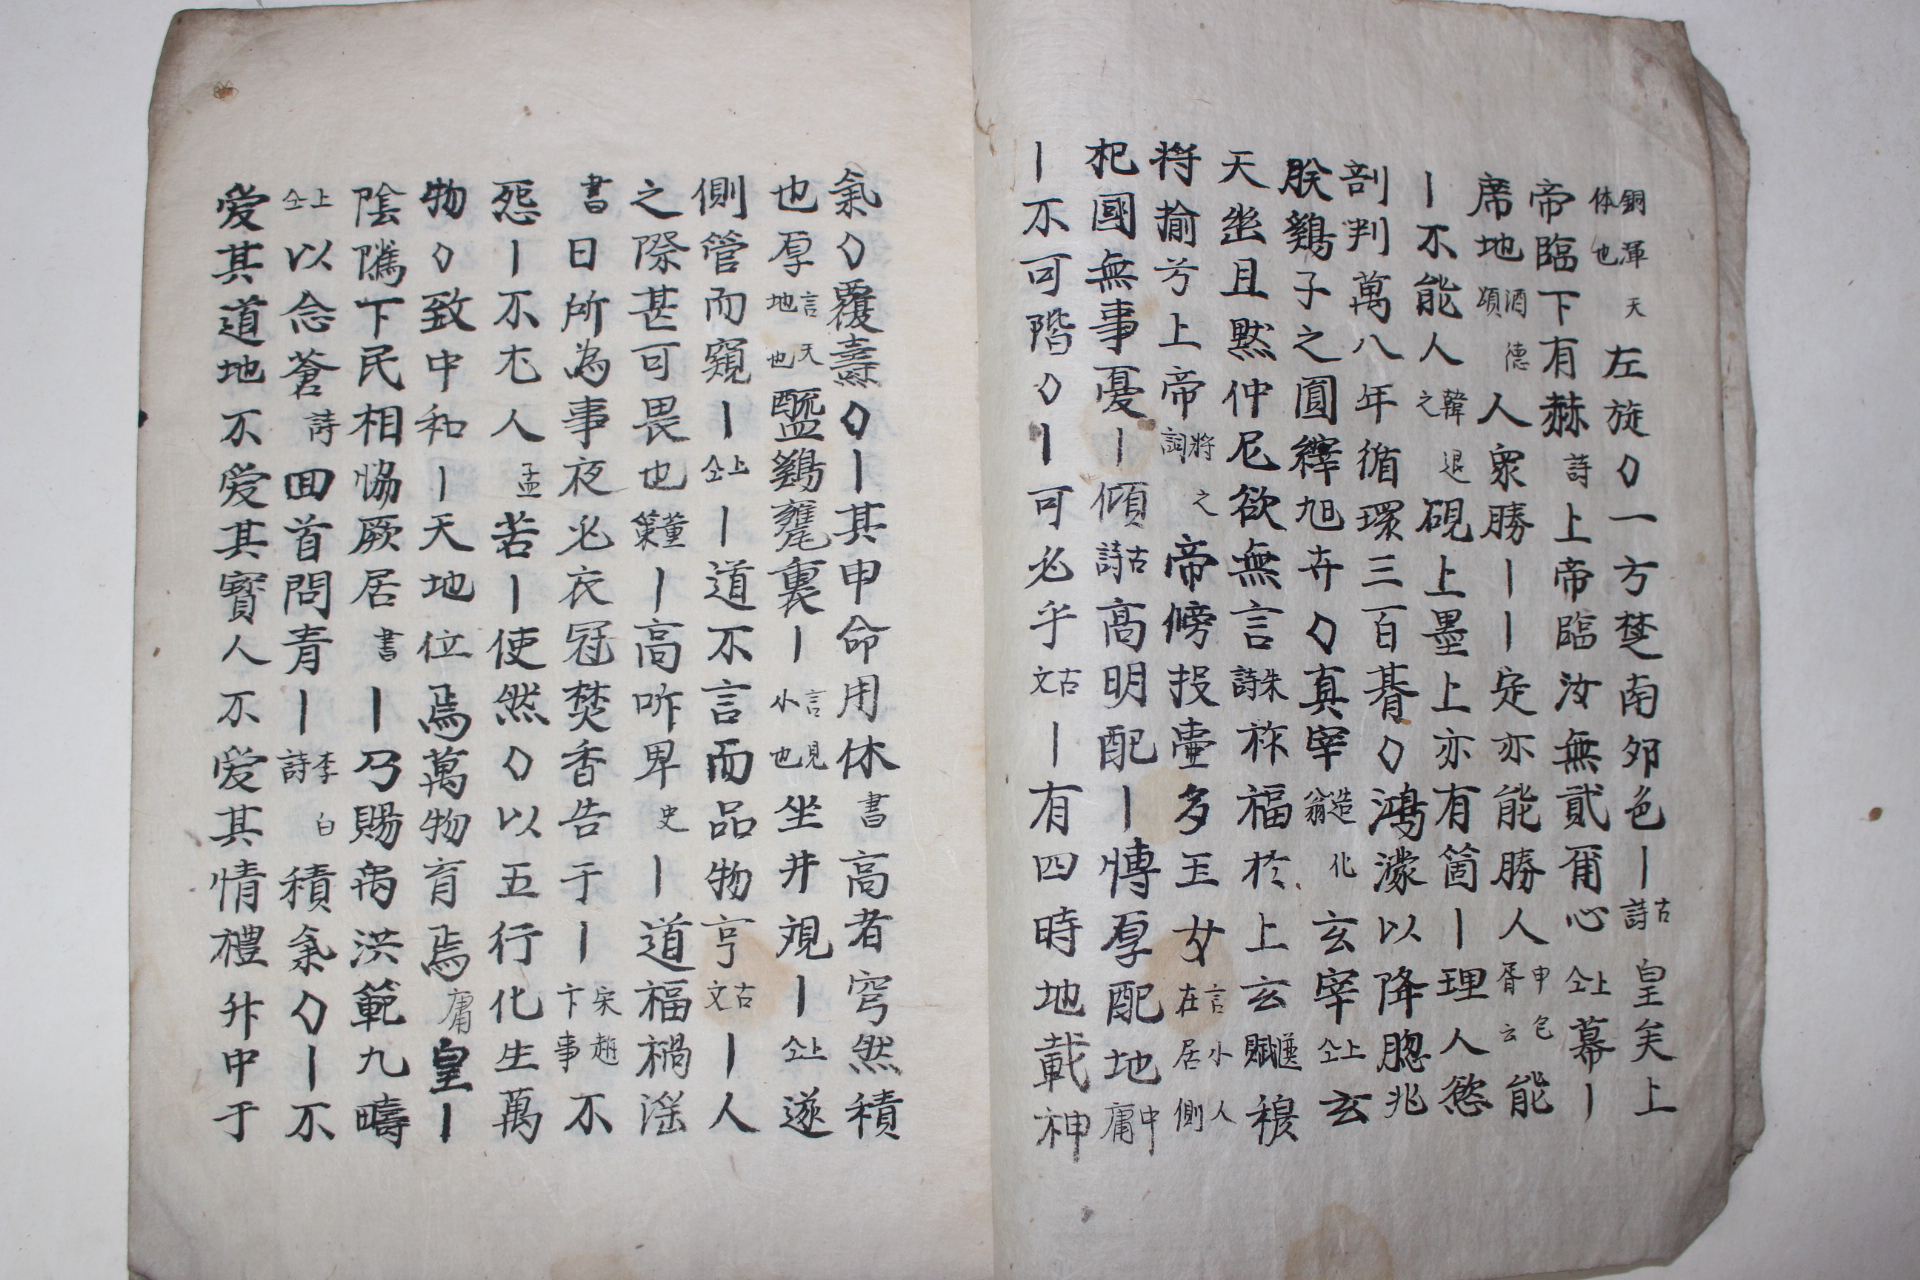 銅渾天体也左旋〇一方楚南夘色丨古詩皇矣上
帝臨下有赫詩上帝臨汝無貳爾心上仝幕丨
席地酒德頌人衆勝丨丨定亦能勝人申包胥云能
丨不能人韓退之硯上墨上亦有箇丨理人慾
剖判萬八年循環三百朞〇鴻濛以降朕兆
朕鷄子之圓繹旭卉〇真宰造化翁玄宰上仝玄
天幽且黙仲尼欲無言朱詩祚福於上玄選賦穆
将揄兮上帝將之詞帝傍投壷多玉女言小人在居側
杞國無事憂丨傾古詩高明配丨愽厚配地中庸
丨不可階〇丨可必乎古文丨有四時地載神
氣〇覆燾〇丨其申命用休書高者穹然積
也厚地言天也醯鷄甕裏丨言見小也坐井覌丨上仝遂
側管而窺丨上仝丨道不言而品物亨古文丨人
之際甚可畏也董策丨高听卑史丨道福禍滛
書日所為事夜必衣冠焚香告于丨宋趙卞事不
怨丨不尤人孟若丨使然〇以五行化生萬
物〇致中和丨天地位焉萬物育焉庸皇丨
陰隲下民相恊厥居書丨乃賜禹洪範九疇
上仝以念蒼詩回首問青丨李白詩積氣〇丨不
爱其道地不爱其寳人不爱其情禮升中于